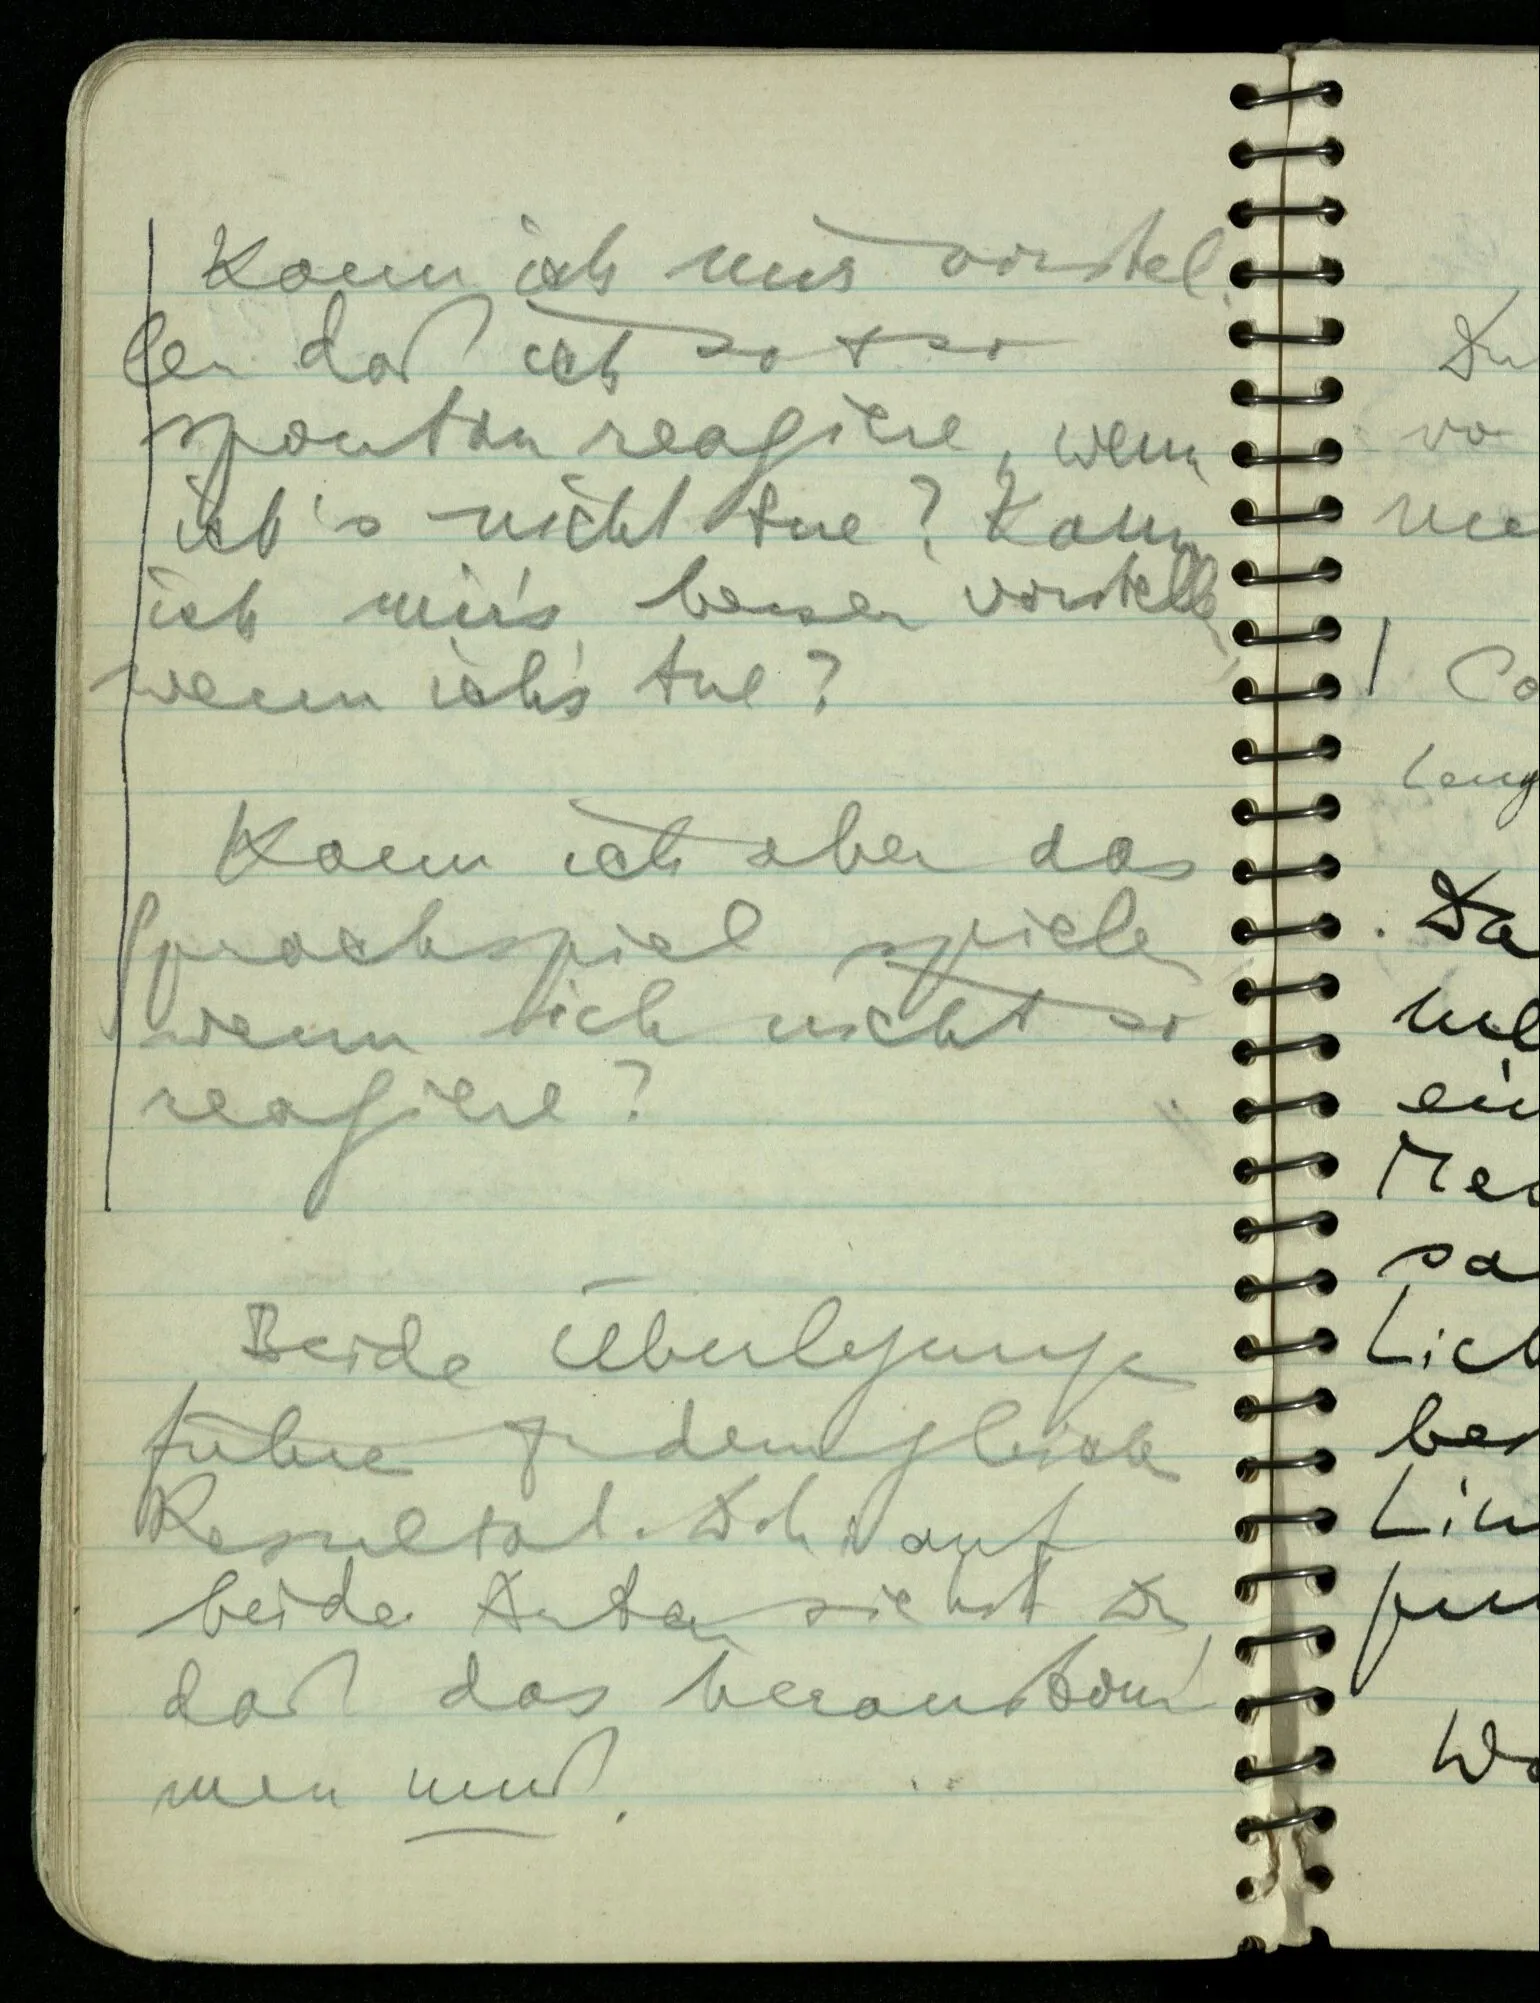 Kann ich mir vorstel-
len daß ich so + so
spontan reagiere, wenn
ich's nicht tue? Kann
ich mir's besser vorstell
wenn ich's tue?
Kann ich aber das
Sprachspiel spielen
wenn ich nicht so
reagiere?
Beide Überlegunge
führe zu dem gleiche
Resultat. Schon auf
beide Arten siehst Du
daß das herauskom-
men muß.
Du
vo
me
| Co
lang
Da
hel
ein
Me
sa
Lich
bes
Lin
fun
Wa